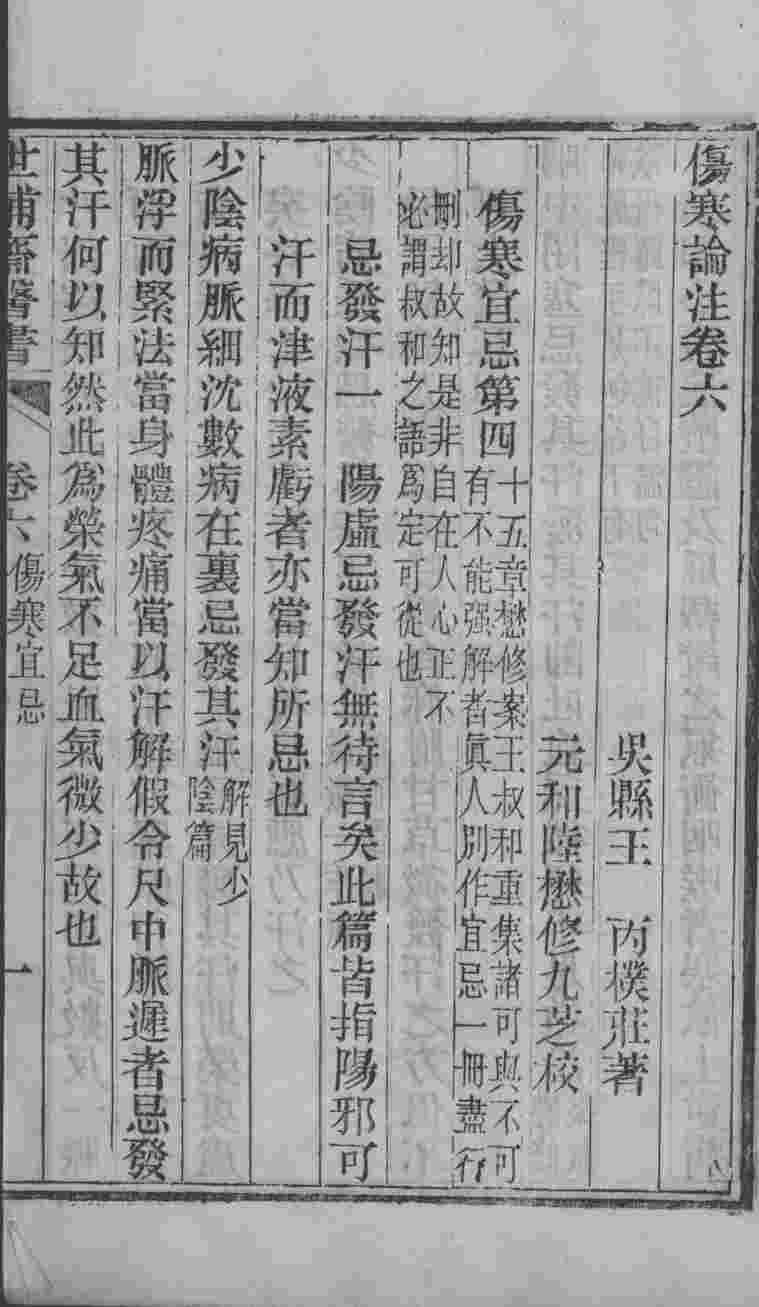 傷寒論注卷六
吳縣王　丙樸莊著
元和陸懋修九芝校
傷寒宜忌第四
十五章懋修案王叔和重集諸可與不可
有不能强解者眞人別作宜忌一冊盡行
刪却故知是非自在人心正不
必謂叔和之語爲定可從也
忌發汗一　陽虛忌發汗無待言矣此篇皆指陽邪可
汗而津液素虧者亦當知所忌也
少陰病脈細沈數病在裏忌發其汗
解見少
陰篇
脈浮而緊法當身體疼痛當以汗解假令尺中脈遲者忌發
其汗何以知然此爲榮氣不足血氣微少故也
世補齋醫書
卷六
傷寒宜忌
一